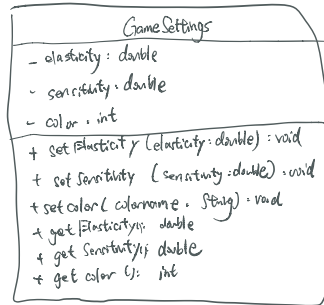 GameSettings
- elasticity : double
- sensitivity : double
- color : int
+ setElasticity (elasticity : double) : void
+ setSensitivity (sensitivity : double) : void
+ setcolor ( colorname : String) : void
+ getElasticity(): double
+ get Sensitivity(): double
+ get color (): int